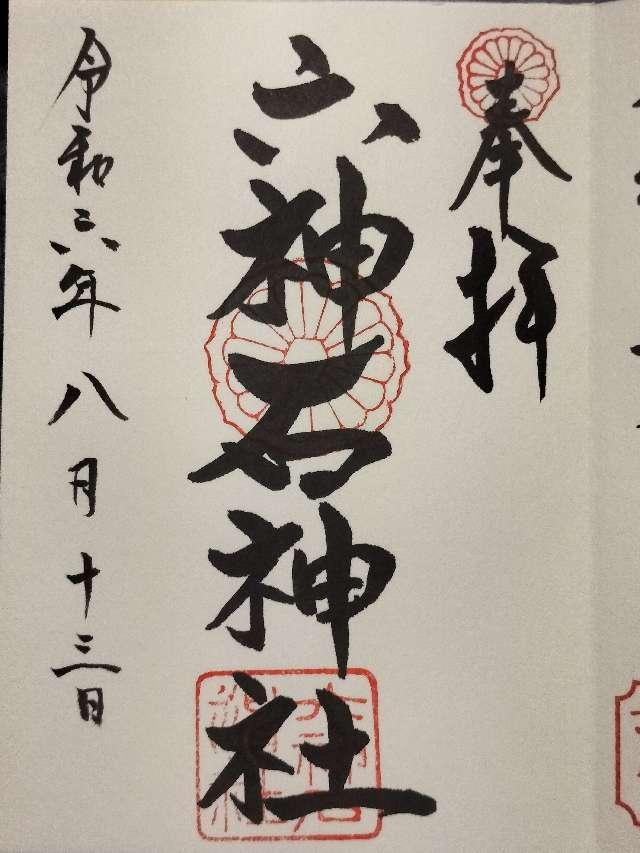 奉拝
六神石神社
令和六年八月十三日